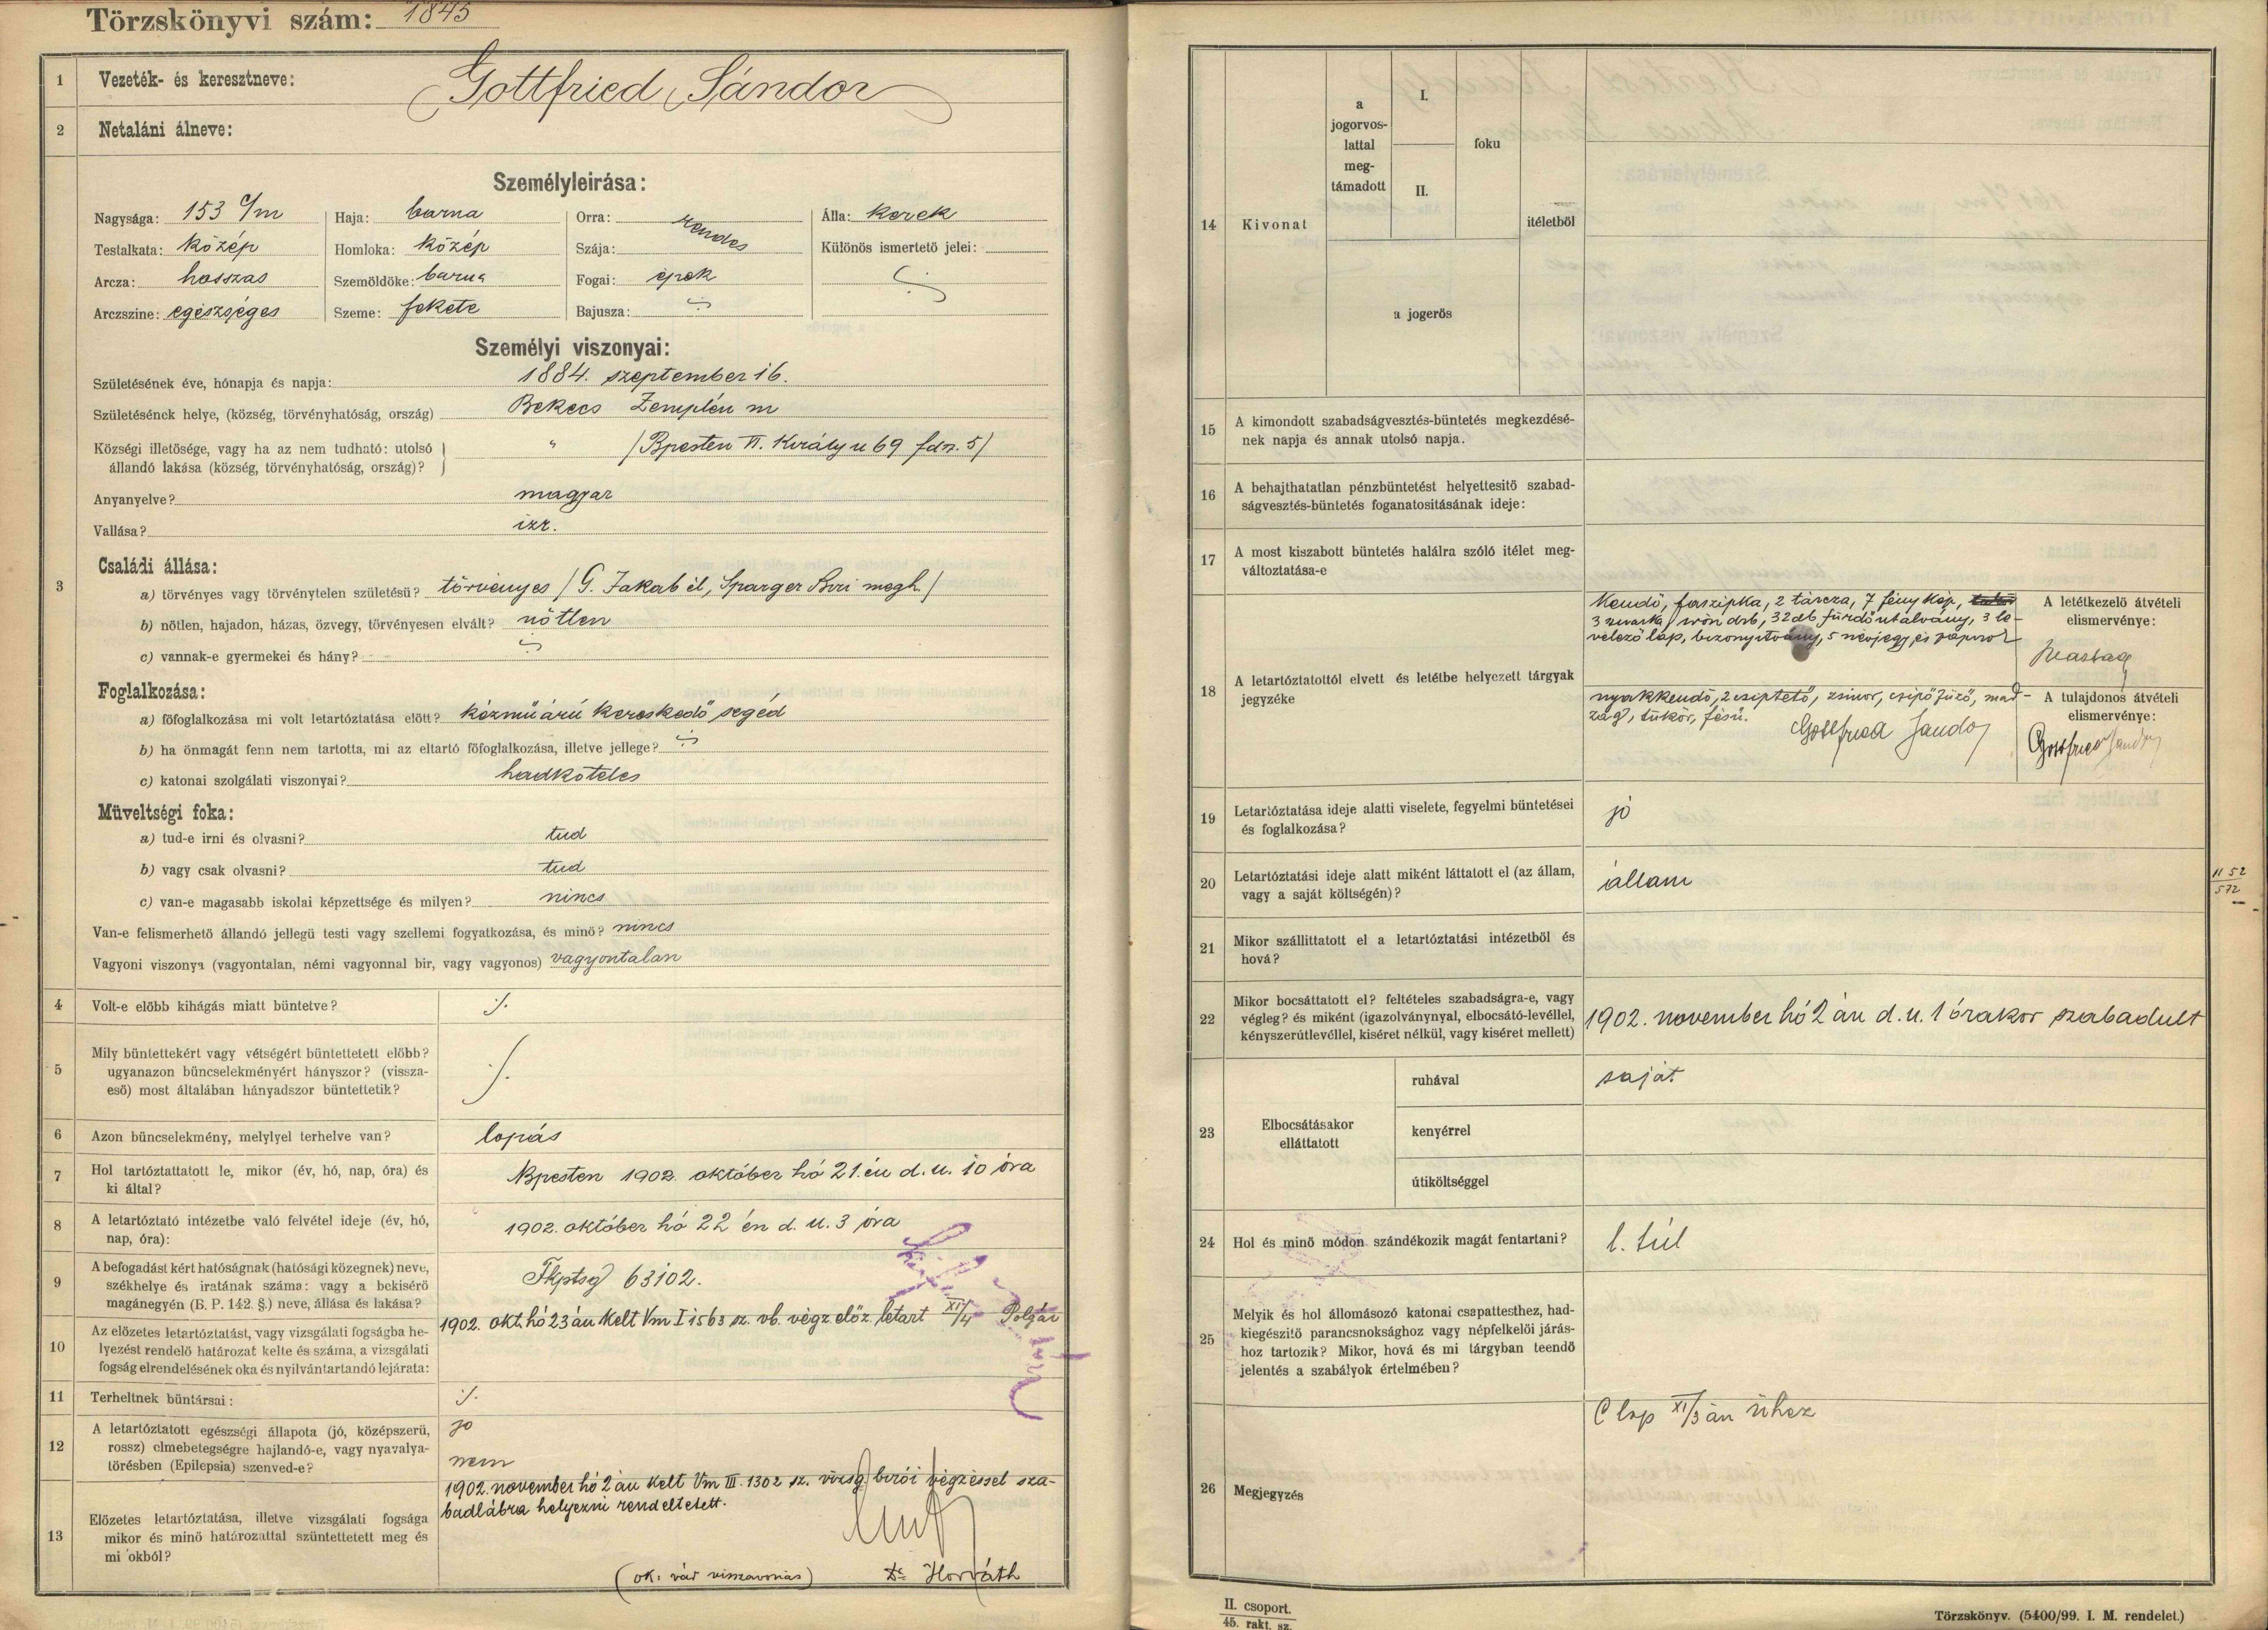 Törzskönyvi szám: 1845
1 Vezeték- és keresztneve: Gottfried Sándor
2 Netaláni álneve:
3
Személyleirása:
Nagysága: 153 c/m Haja: barna Orra: rendes Álla: kerek
Testalkata: közép Homloka: közép Szája: Különös ismertető jelei:
Arcza: hosszas Szemöldöke: barna Fogai: épek
Arczszine: egészséges Szeme: fekete Bajusza:
Személyi viszonyai:
Születésének éve, hónapja és napja: 1884. szeptember 16.
Születésének helye, (község, törvényhatóság, ország) Bekecs Zemplén m
Községi illetősége, vagy ha az nem tudható: utolsó állandó lakása (község, törvényhatóság, ország)? " /Bpesten VI. Király u 69 fdsz. 5/
Anyanyelve? magyar
Vallása? izr.
Családi állása:
a) törvényes vagy törvénytelen születésü? törvényes /G. Jakab él, Sparger Bori megh./
b) nőtlen, hajadon, házas, özvegy, törvényesen elvált? nőtlen
c) vannak-e gyermekei és hány?
Foglalkozása:
a) főfoglalkozása mi volt letartóztatása előtt? kézműárú kereskedő segéd
b) ha önmagát fenn nem tartotta, mi az eltartó főfoglalkozása, illetve jellege?
c) katonai szolgálati viszonyai? hadköteles
Müveltségi foka:
a) tud-e irni és olvasni? tud
b) vagy csak olvasni? tud
c) van-e magasabb iskolai képzettsége és milyen? nincs
Van-e felismerhető állandó jellegü testi vagy szellemi fogyatkozása, és minő? nincs
Vagyoni viszonya (vagyontalan, némi vagyonnal bir, vagy vagyonos) vagyontalan
4 Volt-e előbb kihágás miatt büntetve? ·/.
5 Mily büntettekért vagy vétségért büntettetett előbb?
ugyanazon büncselekményért hányszor? (vissza-
eső) most általában hányadszor büntettetik? ·/.
6 Azon büncselekmény, melylyel terhelve van? lopás
7 Hol tartóztattatott le, mikor (év, hó, nap, óra) és
ki által? Bpesten 1902. október hó 21.én d. u. 10 óra
8 A letartóztató intézetbe való felvétel ideje (év, hó,
nap, óra): 1902. október hó 22 én d. u. 3 óra
9 A befogadást kért hatóságnak (hatósági közegnek) neve,
székhelye és iratának száma: vagy a bekisérő
magánegyén (B. P. 142. §.) neve, állása és lakása? Fkptsg 63102.
10 Az előzetes letartóztatást, vagy vizsgálati fogságba he-
lyezést rendelő határozat kelte és száma, a vizsgálati
fogság elrendelésének oka és nyilvántartandó lejárata:
1902. okt. hó 23 án kelt Vm I 1563 sz. vb. végz. előz. letart XI/4 Polgár
11 Terheltnek büntársai: ·/.
12 A letartóztatott egészségi állapota (jó, középszerü,
rossz) elmebetegségre hajlandó-e, vagy nyavalya-
törésben (Epilepsia) szenved-e?
jo
nem
13 Előzetes letartóztatása, illetve vizsgálati fogsága
mikor és minő határozattal szüntettetett meg és
mi okból?
1902. november hó 2 án kelt Vm III. 1302 sz. vizsg. birói végzéssel sza-
badlábra helyezni rendeltetett.
(ok: vád visszavonás) Dr Horváth
14 Kivonat
a jogorvos-
lattal
meg-
támadott
I.
II.
foku
itéletből
a jogerős
15 A kimondott szabadságvesztés-büntetés megkezdésé-
nek napja és annak utolsó napja.
16 A behajthatatlan pénzbüntetést helyettesitő szabad-
ságvesztés-büntetés foganatositásának ideje:
17 A most kiszabott büntetés halálra szóló itélet meg-
változtatása-e
18 A letartóztatottól elvett és letétbe helyezett tárgyak
jegyzéke
Kendő, faszipka, 2 tárcza, 7 fény kép,
3 szivarka, 32 db fürdő utalvány, 3 le-
velező lap, bizonyitvány, 5 névjegy, és papiros
A letétkezelő átvételi
elismervénye:
nyakkendő, 2 csiptető, zsinor, csipőfüző, mad-
zag, tükör, fésü.
Gottfried Sándor
A tulajdonos átvételi
elismervénye:
Gottfried Sándor
19 Letartóztatása ideje alatti viselete, fegyelmi büntetései
és foglalkozása? jó
20 Letartóztatási ideje alatt miként láttatott el (az állam,
vagy a saját költségén)? állam
1152
572
21 Mikor szállittatott el a letartóztatási intézetből és
hová?
22 Mikor bocsáttatott el? feltételes szabadságra-e, vagy
végleg? és miként (igazolványnyal, elbocsátó-levéllel,
kényszerútlevéllel, kiséret nélkül, vagy kiséret mellett)
1902. november hó 2 án d. u. 1 órakor szabadult
23 Elbocsátásakor
elláttatott
ruhával saját
kenyérrel
útiköltséggel
24 Hol és minő módon szándékozik magát fentartani? l. túl
25 Melyik és hol állomásozó katonai csapattesthez, had-
kiegészitő parancsnoksághoz vagy népfelkelői járás-
hoz tartozik? Mikor, hová és mi tárgyban teendő
jelentés a szabályok értelmében?
26 Megjegyzés
C lap XI/3 án
II. csoport.
45. rakt. sz.
Törzskönyv. (5400/99. I. M. rendelet.)